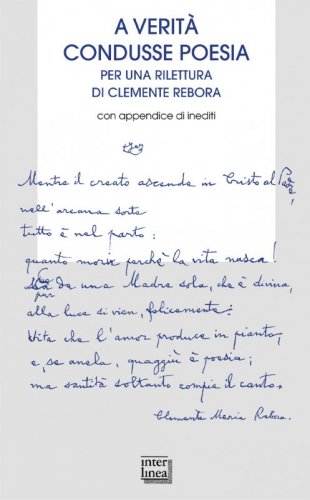 A VERITÀ
CONDUSSE POESIA
PER UNA RILETTURA
DI CLEMENTE REBORA
con appendice di inediti
Mentre il creato ascende in Cristo al Padre,
nell'arcana sorte
tutto è nel parto:
quanto morir perché la vita nasca!
pur da una Madre sola, che è divina,
alla luce si vien, felicemente:
Vita che l'amor produce in pianto,
e, se anela, quaggiù è poesia;
ma santità soltanto compie il canto.
Clemente Maria Rebora.
inter
linea